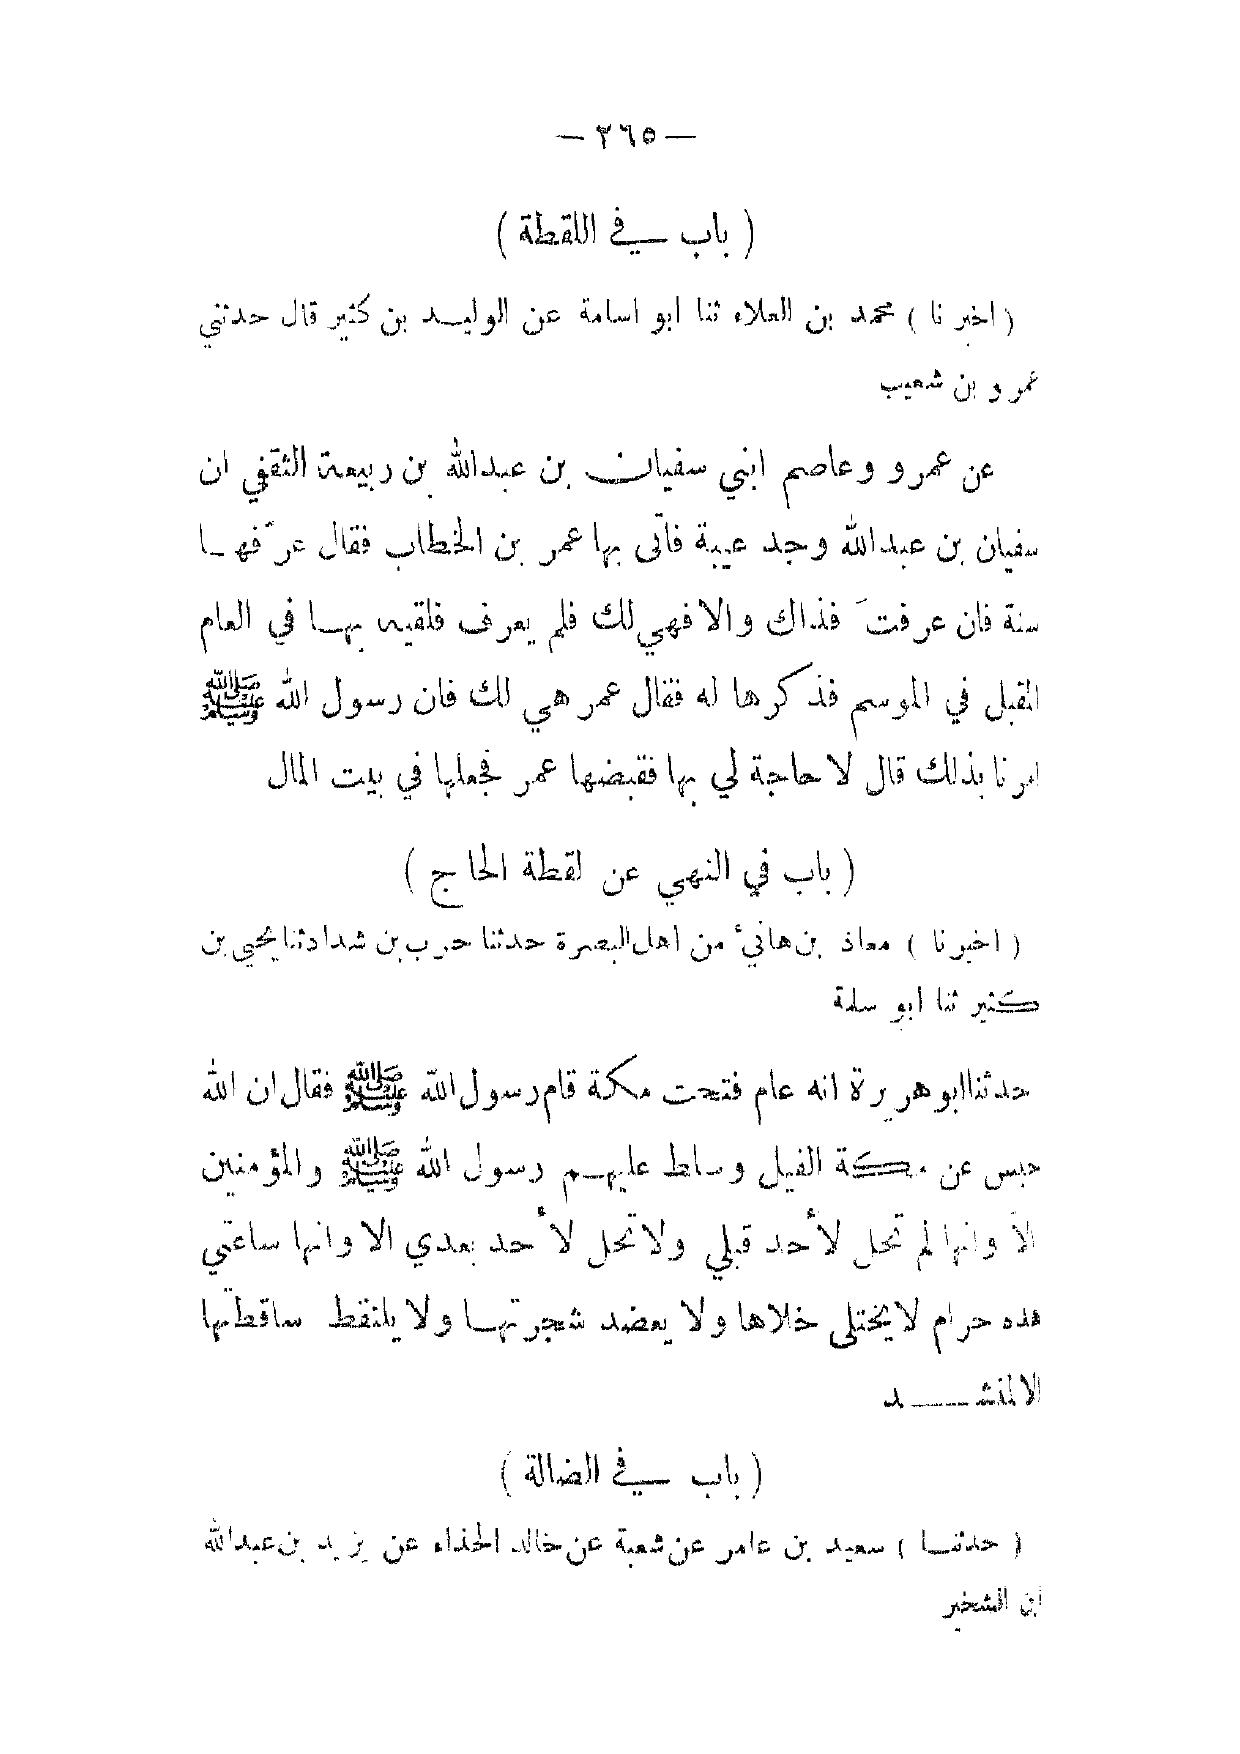 — ٢٦٥ —
( باب في اللقطة )
( اخبرنا ) محمد بن العلاء ثنا ابو اسامة عن الوليد بن كثير قال حدثني
عمرو بن شعيب
عن عمرو وعاصم ابني سفيان بن عبدالله بن ربيعة الثقفي ان
سفيان بن عبدالله وجد عيبة فاتى بها عمر بن الخطاب فقال عرّفها
سنة فان عرفتَ فذاك والا فهي لك فلم يعرف فلقيه بها في العام
المقبل في الموسم فذكرها له فقال عمر هي لك فان رسول الله ﷺ
امرنا بذلك قال لا حاجة لي بها فقبضها عمر فجعلها في بيت المال
( باب في النهي عن لقطة الحاج )
( اخبرنا ) معاذ بن هانئ من اهل البصرة حدثنا حرب بن شداد ثنا يحيى بن
كثير ثنا ابو سلمة
حدثنا ابو هريرة انه عام فتحت مكة قام رسول الله ﷺ فقال ان الله
حبس عن مكة الفيل وسلط عليهم رسول الله ﷺ والمؤمنين
الا وانها لم تحل لأحد قبلي ولا تحل لأحد بعدي الا وانها ساعتي
هذه حرام لا يختلى خلاها ولا يعضد شجرتها ولا يلتقط ساقطتها
الا لمنشد
( باب في الضالة )
( حدثنا ) سعيد بن عامر عن شعبة عن خالد الحذاء عن يزيد بن عبدالله
ابن الشخير